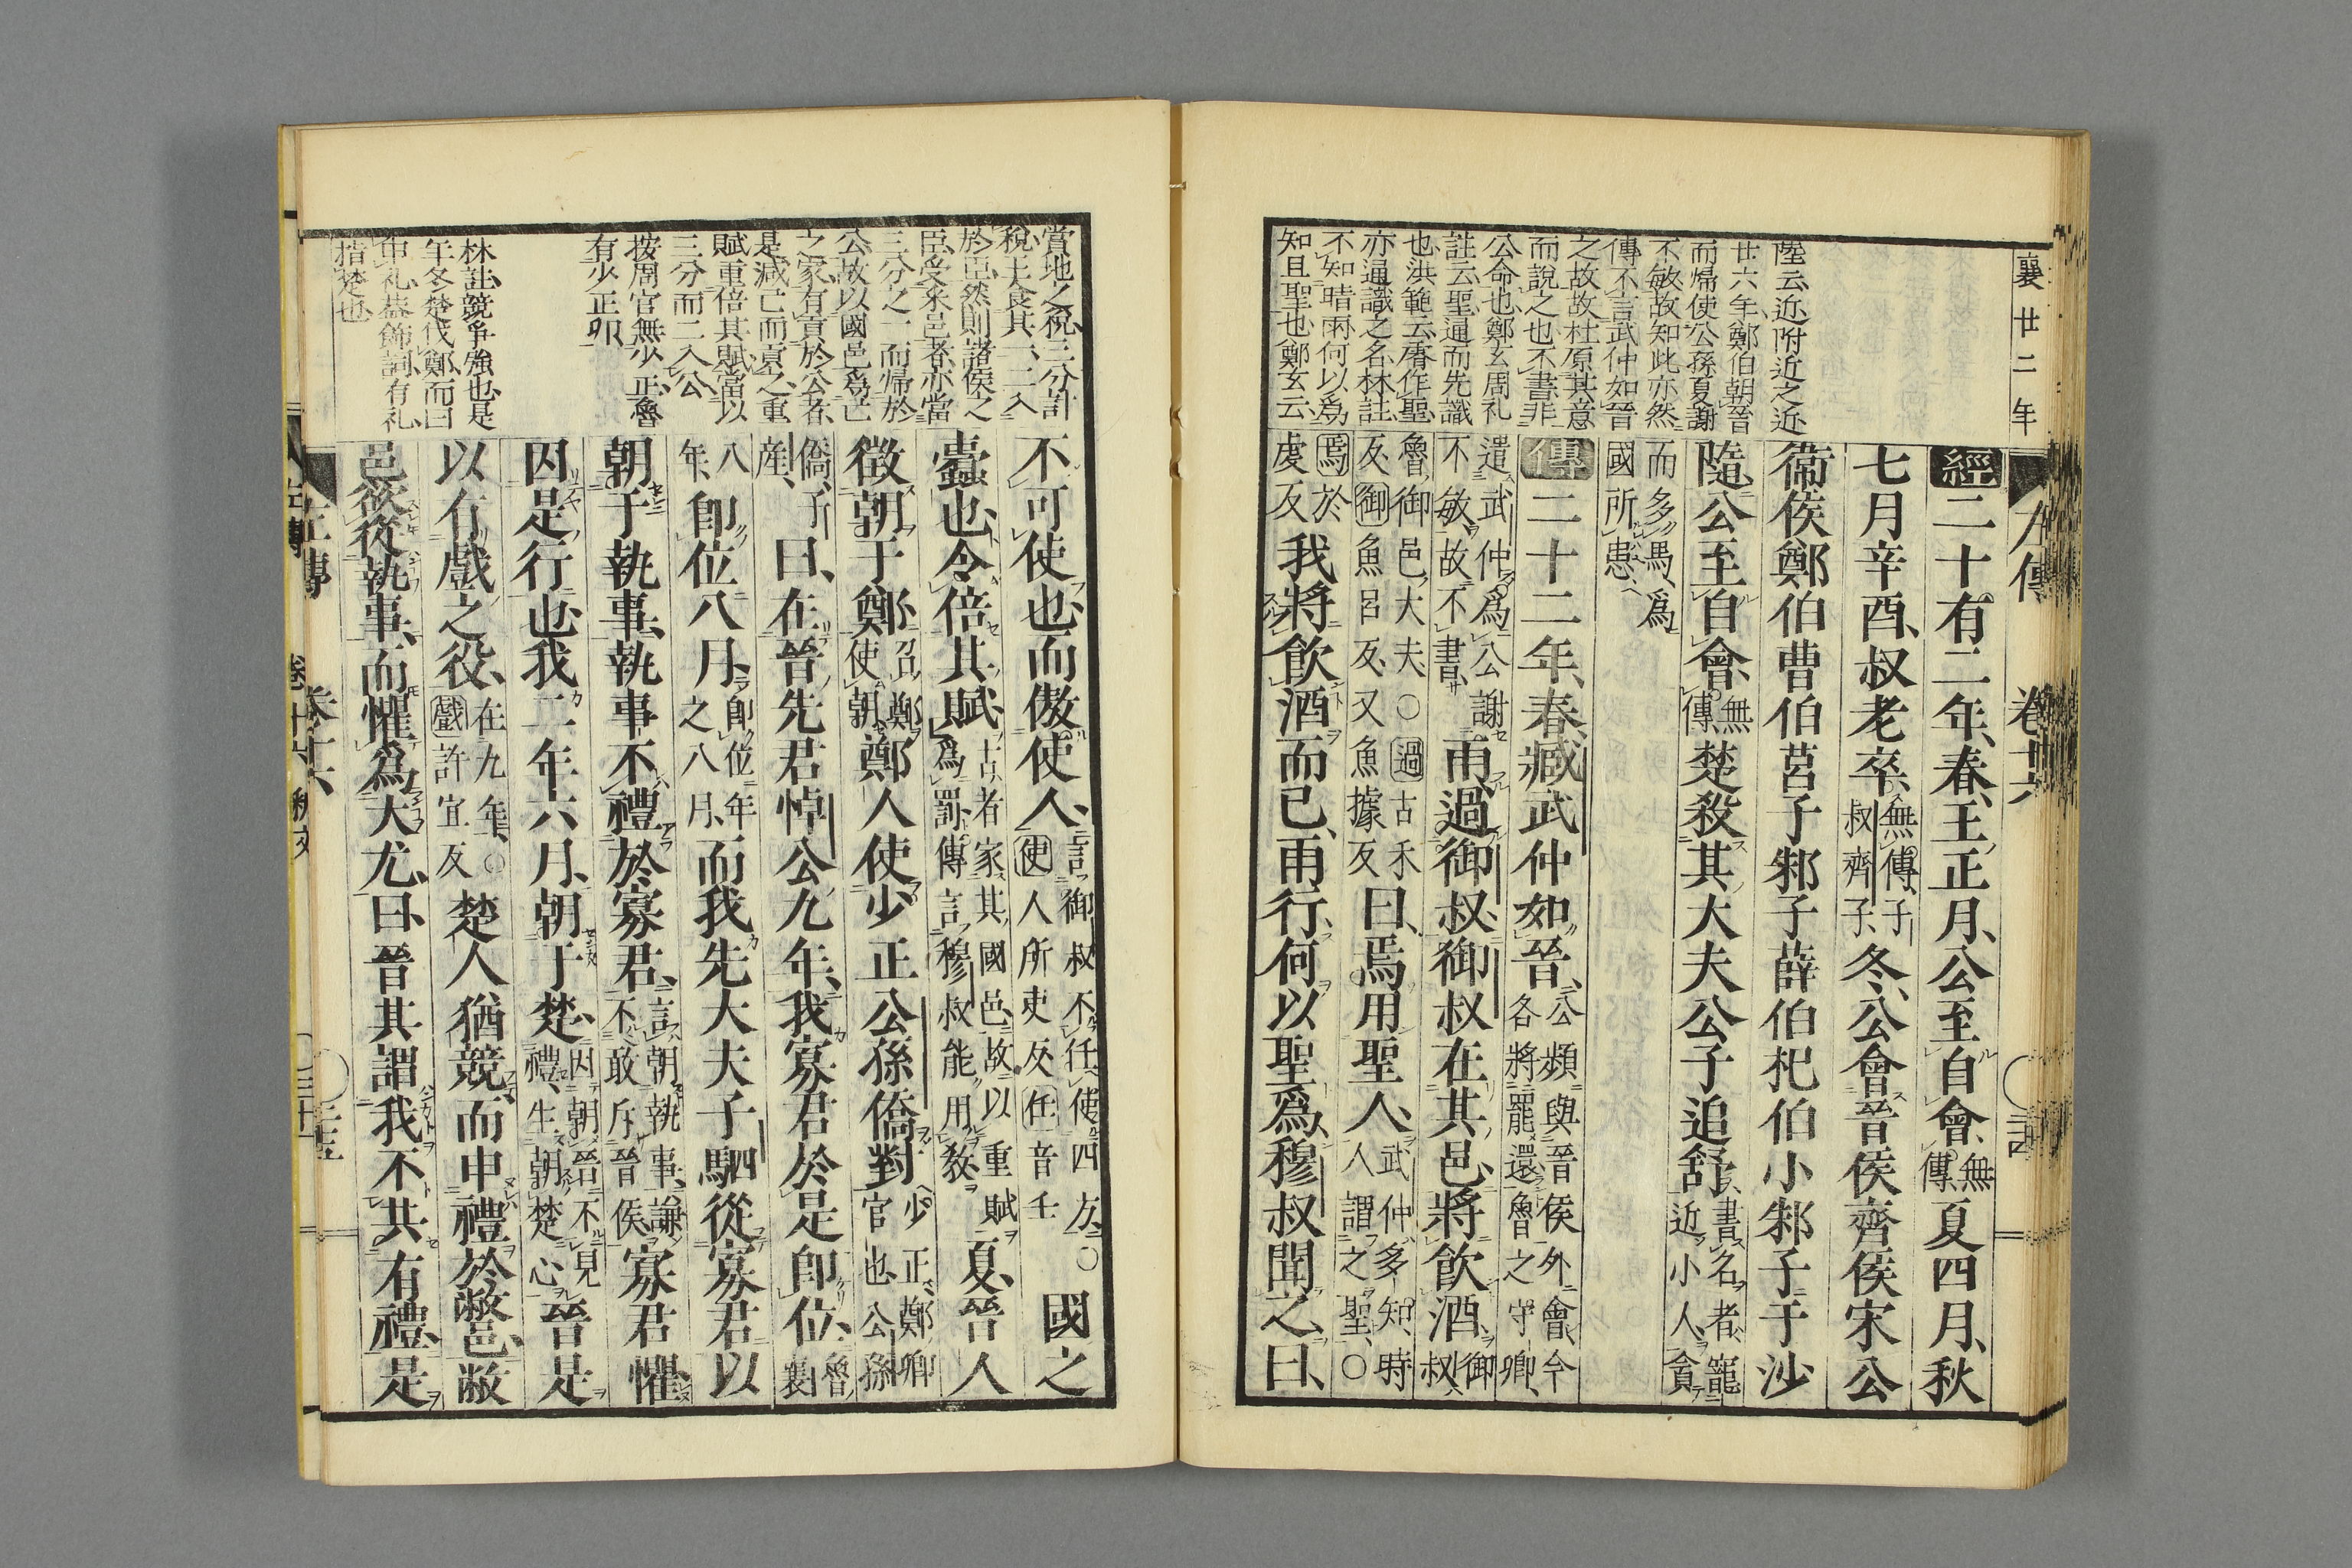 襄廿二年
陸云近附近之近
廿六年鄭伯朝晉
而歸使公孫夏謝
不敏故知此亦然
傳不言武仲如晉
之故故杜原其意
而說之也不書非
公命也鄭玄周礼
註云聖通而先識
也洪範云睿作聖
亦通識之名林註
不知晴雨何以爲
知且聖也鄭玄云
經二十有二年春王正月公至自會無傳夏四月秋
七月辛酉叔老卒無傳子叔齊子冬公會晉侯齊侯宋公
衞侯鄭伯曹伯莒子邾子薛伯杞伯小邾子于沙
隨公至自會無傳楚殺其大夫公子追舒書名者寵近小人貪
而多馬爲國所患
傳二十二年春臧武仲如晉公頻與晉侯外會今各將罷還魯之守卿
遣武仲爲公謝不敏故不書雨過御叔御叔在其邑將飮酒御叔
魯御邑大夫○過古禾反御魚呂反又魚據反曰焉用聖人武仲多知時人謂之聖○
焉於虔反我將飮酒而已雨行何以聖爲穆叔聞之曰
當地之稅三分計
稅王食其一二入
於臣然則諸侯之
臣受采邑者亦當
三分之一而歸於
公故以國邑爲己
之家有貢於公者
是減己而貢之重
賦重倍其賦當以
三分而二入公
按周官無少正魯
有少正卯
林註競爭強也是
年冬楚伐鄭而曰
申礼蓋飾詞有礼
指楚也
不可使也而傲使人言御叔不任使四方○使人所吏反任音壬國之
蠹也令倍其賦古者家其國邑故以重賦爲罰傳言穆叔能用敎夏晉人
徵朝于鄭召鄭使朝鄭人使少正公孫僑對少正鄭卿官也公孫
僑子產曰在晉先君悼公九年我寡君於是卽位魯襄
八年卽位八月卽位年之八月而我先大夫子駟從寡君以
朝于執事執事不禮於寡君言朝執事謙不敢斥晉侯寡君懼
因是行也我二年六月朝于楚因朝晉不見禮生朝楚心晉是
以有戲之役在九年○戲許宜反楚人猶競而申禮於敝邑敝
邑欲從執事而懼爲大尤曰晉其謂我不共有禮是
左傳 卷十六 三十五